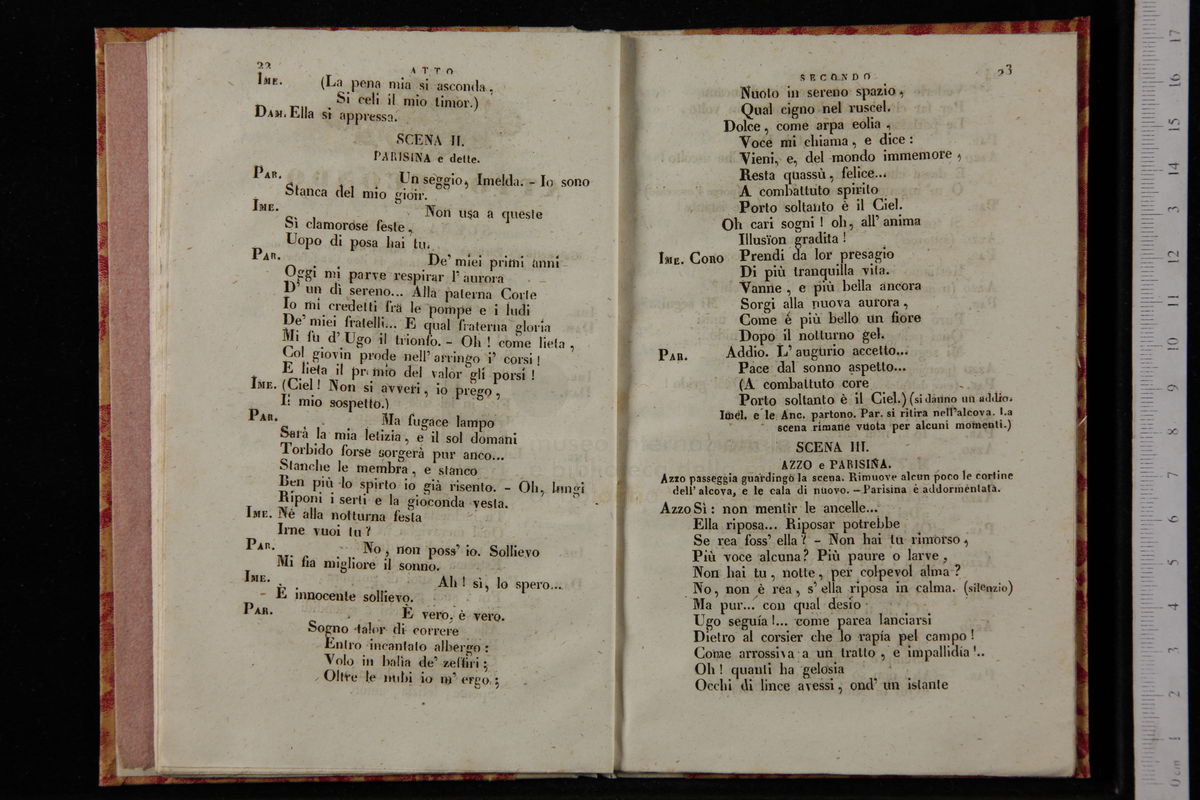 22
ATTO
IME. (La pena mia si asconda,
Si celi il mio timor.)
DAM. Ella si appressa.
SCENA II.
PARISINA e dette.
PAR. Un seggio, Imelda. - Io sono
Stanca del mio gioir.
IME. Non usa a queste
Sì clamorose feste,
Uopo di posa hai tu.
PAR. De' miei primi anni
Oggi mi parve respirar l'aurora
D'un dì sereno... Alla paterna Corte
Io mi credetti fra le pompe e i ludi
De' miei fratelli... E qual fraterna gloria
Mi fu d'Ugo il trionfo. - Oh! come lieta,
Col giovin prode nell' arringo i' corsi!
E lieta il premio del valor gli porsi!
IME. (Ciel! Non si avveri, io prego,
Il mio sospetto.)
PAR. Ma fugace lampo
Sarà la mia letizia, e il sol domani
Torbido forse sorgerà pur anco...
Stanche le membra, e stanco
Ben più lo spirto io già risento. - Oh, lungi
Riponi i serti e la gioconda vesta.
IME. Nè alla notturna festa
Irne vuoi tu?
PAR. No, non poss' io. Sollievo
Mi fia migliore il sonno.
IME. Ah! sì, lo spero...
- E innocente sollievo.
PAR. È vero, è vero.
Sogno talor di correre
Entro incantato albergo:
Volo in balìa de' zeffiri;
Oltre le nubi io m' ergo;
SECONDO
23
Nuoto in sereno spazio,
Qual cigno nel ruscel.
Dolce, come arpa eolia,
Voce mi chiama, e dice:
Vieni, e, del mondo immemore,
Resta quassù, felice...
A combattuto spirito
Porto soltanto è il Ciel.
Oh cari sogni! oh, all' anima
Illusïon gradita!
IME. CORO Prendi da lor presagio
Di più tranquilla vita.
Vanne, e più bella ancora
Sorgi alla nuova aurora,
Come é più bello un fiore
Dopo il notturno gel.
PAR. Addio. L' augurio accetto...
Pace dal sonno aspetto...
(A combattuto core
Porto soltanto è il Ciel.) (si danno un addio.
Imel. e le Anc. partono. Par. si ritira nell'alcova. La
scena rimane vuota per alcuni momenti.)
SCENA III.
AZZO e PARISINA.
Azzo passeggia guardingo la scena. Rimuove alcun poco le cortine
dell' alcova, e le cala di nuovo. — Parisina è addormentata.
AZZO Sì: non mentir le ancelle...
Ella riposa... Riposar potrebbe
Se rea foss' ella? - Non hai tu rimorso,
Più voce alcuna? Più paure o larve,
Non hai tu, notte, per colpevol alma?
No, non è rea, s' ella riposa in calma. (silenzio)
Ma pur... con qual desío
Ugo seguía!... come parea lanciarsi
Dietro al corsier che lo rapía pel campo!
Come arrossiva a un tratto, e impallidía!..
Oh! quanti ha gelosia
Occhi di lince avessi, ond' un istante